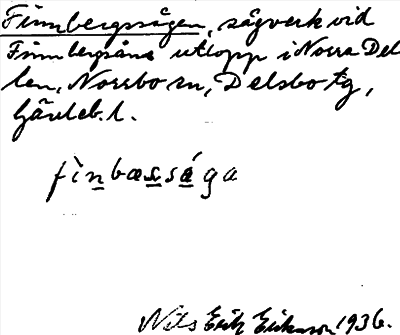 Finnbergssågen, sågverk vid
Finnbergsåns utlopp i Norra Del
len, Norrbo sn, Delsbo tg,
Gävleb. l.
fìn̲bæs̲sá̲ga
Nils Erik Eriksson 1936.